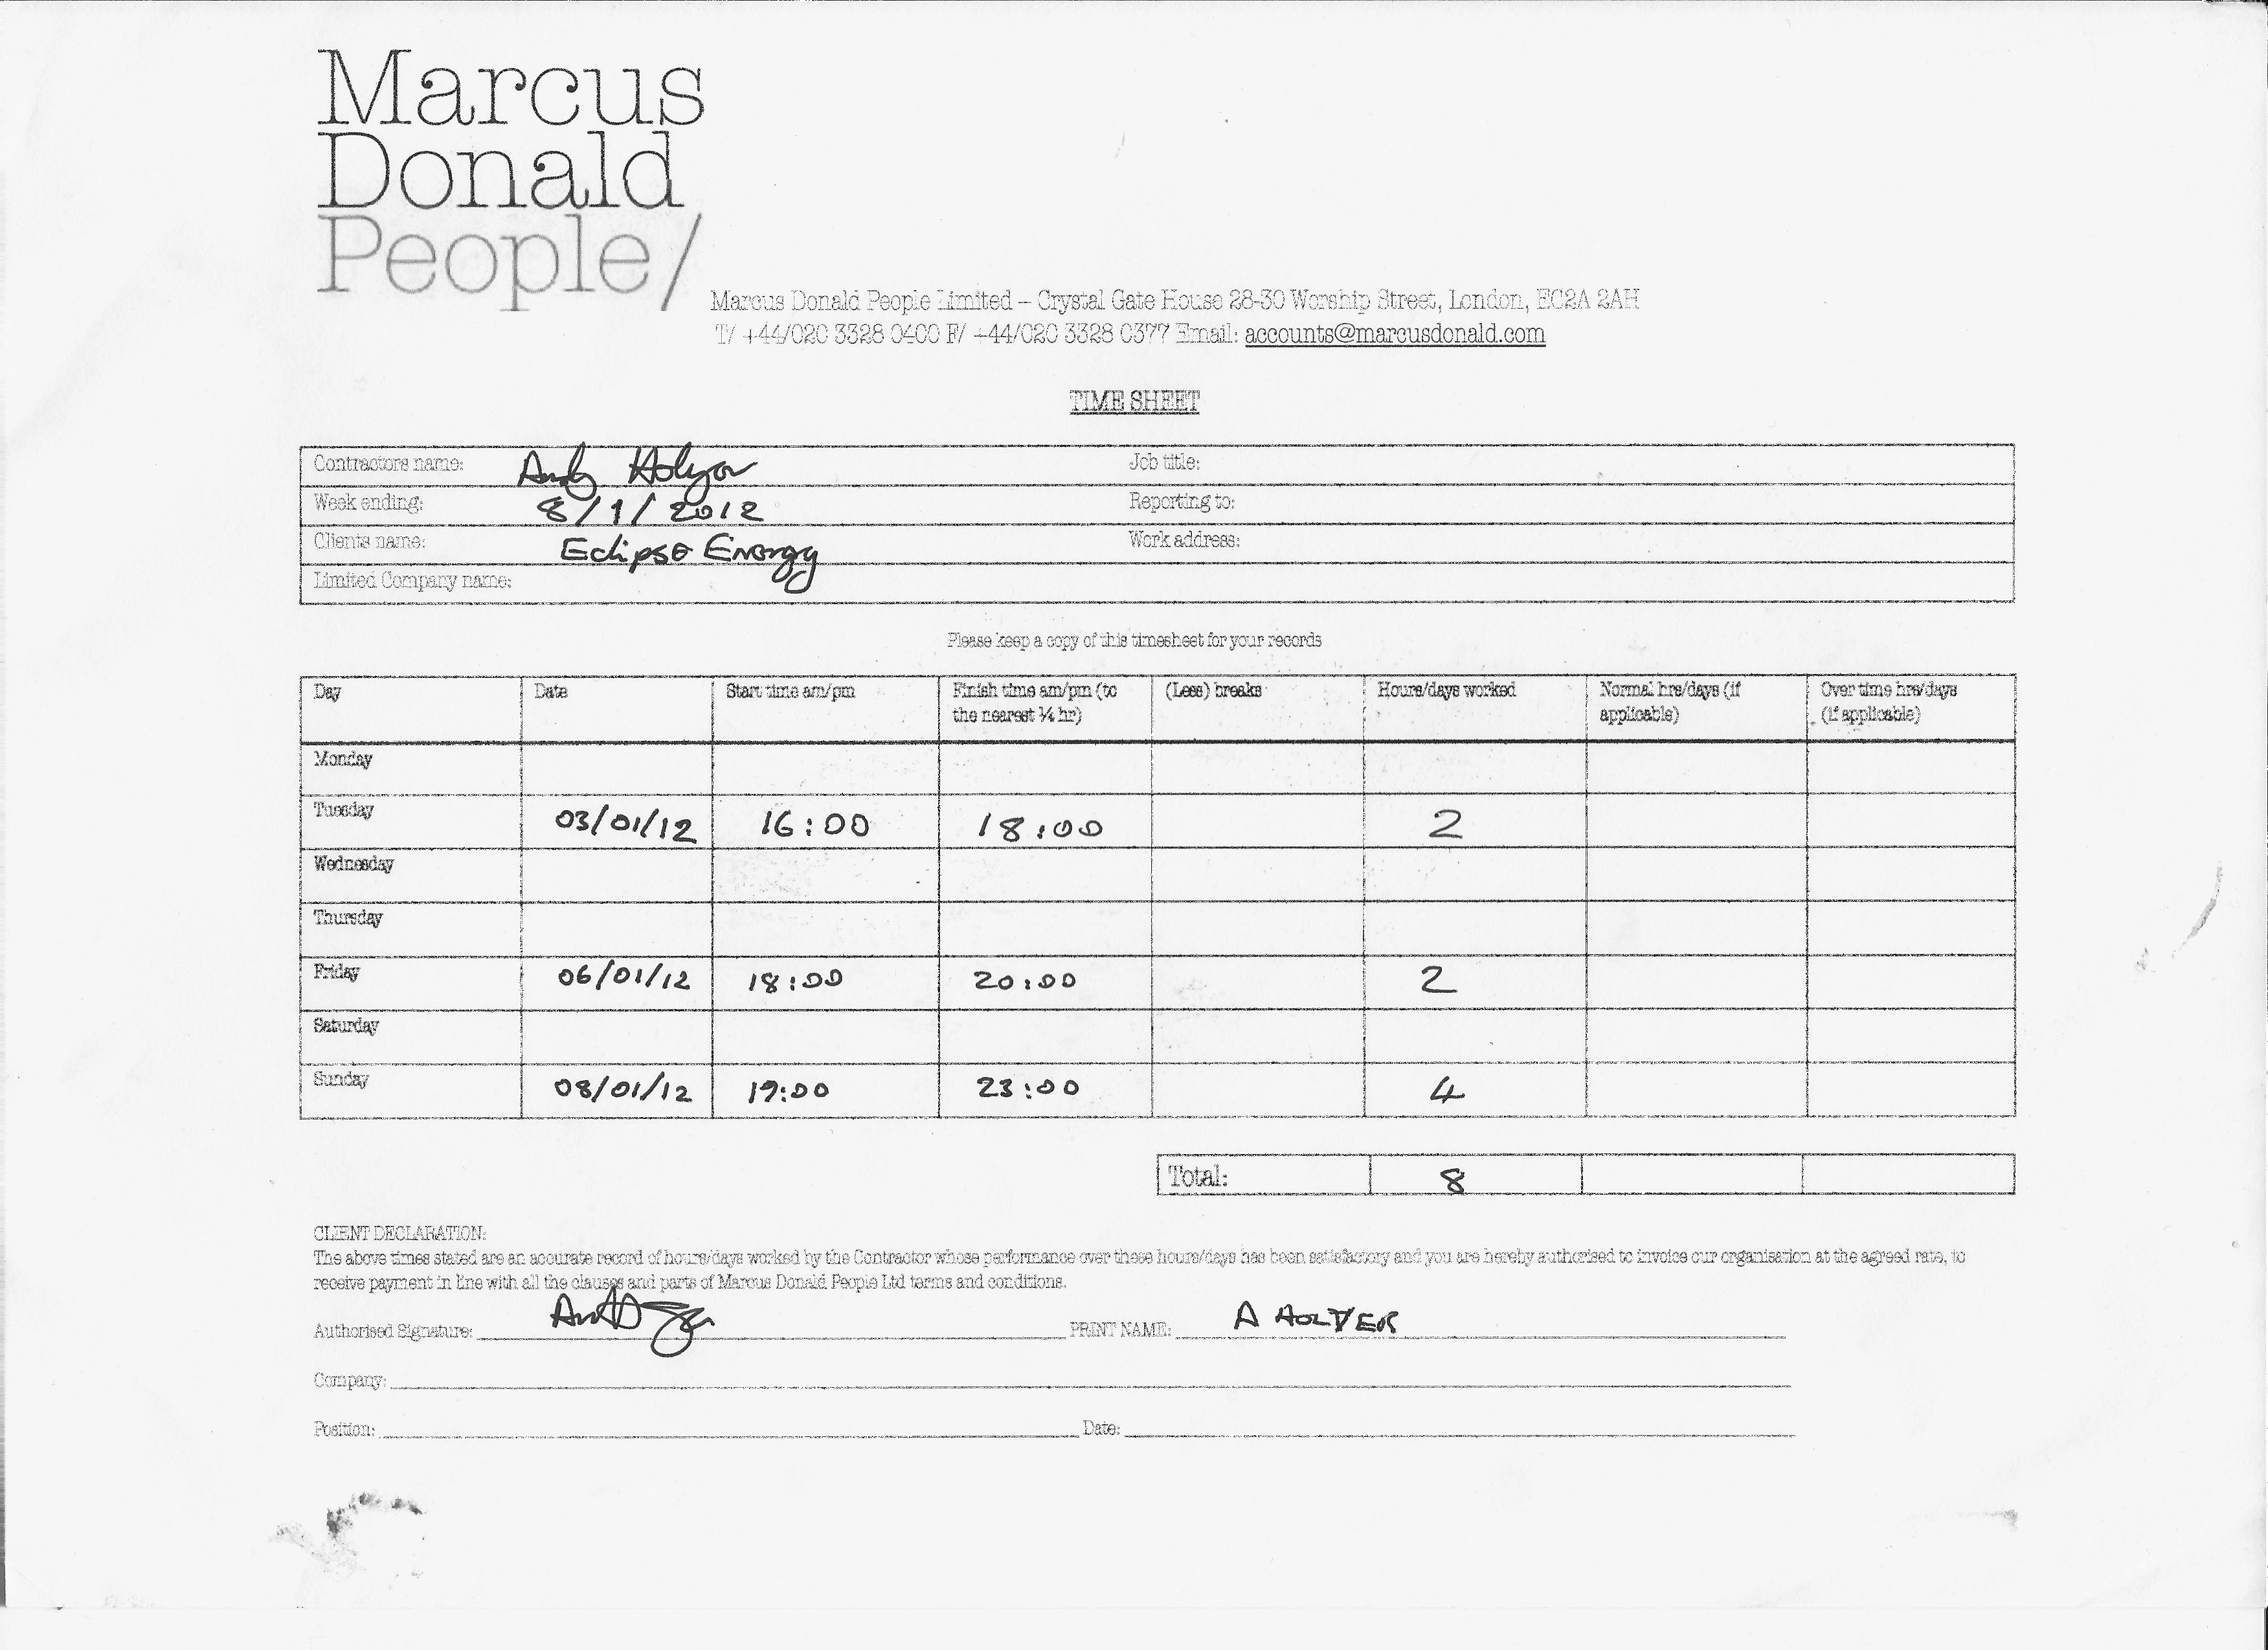 Marcus
Donald
People/
Marcus Donald People Limited – Crystal Gate House 28-30 Worship Street, London, EC2A 2AH
T/ +44/020 3328 0400 F/ +44/020 3328 0377 Email: accounts@marcusdonald.com
TIME SHEET
Contractors name: Andy Holyer Job title:
Week ending: 8/1/2012 Reporting to:
Clients name: Eclipse Energy Work address:
Limited Company name:
Please keep a copy of this timesheet for your records
Day Date Start time am/pm Finish time am/pm (to the nearest ¼ hr) (Less) breaks Hours/days worked Normal hrs/days (if applicable) Over time hrs/days (if applicable)
Monday
Tuesday 03/01/12 16:00 18:00 2
Wednesday
Thursday
Friday 06/01/12 18:00 20:00 2
Saturday
Sunday 08/01/12 19:00 23:00 4
Total: 8
CLIENT DECLARATION:
The above times stated are an accurate record of hours/days worked by the Contractor whose performance over these hours/days has been satisfactory and you are hereby authorised to invoice our organisation at the agreed rate, to
receive payment in line with all the clauses and parts of Marcus Donald People Ltd terms and conditions.
Authorised Signature: PRINT NAME: A HOLYER
Company:
Position: Date: